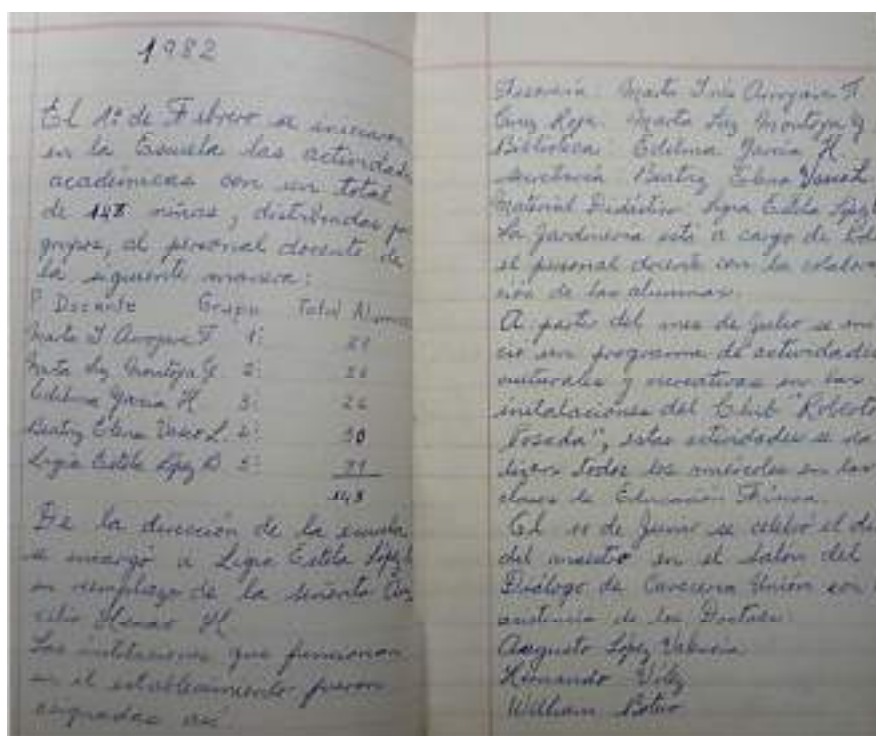 1982
El 1º de Febrero se iniciaron
en la Escuela las actividades
académicas con un total
de 148 niñas, distribuidas por
grupos, al personal docente de
la siguiente manera:
P. Docente Grupo Total Alumnas
Marta I Arroyave T 1º
Marta Luz Montoya G. 2º
Edilma García H. 3º 26
Beatriz Elena Vasco L. 4º 30
Ligia Estela López B 5º
148
De la dirección de la escuela
se encargó a Ligia Estela López
en remplazo de la señorita
Henao H.
Las instituciones que funcionan
en el establecimiento fueron
asignadas así
Tesorería: Marta Inés Arroyave T
Cruz Roja: Marta Luz Montoya G
Biblioteca: Edilma García H
Secretaria Beatriz Elena Vasco L
Material Didáctico Ligia Estela López
La jardinería está a cargo de todo
el personal docente con la colabora
ción de las alumnas.
A partir del mes de julio se ini
ció un programa de actividades
culturales y recreativas en las
instalaciones del Club "Roberto
Posada", estas actividades se
todos los miércoles en las
clases de Educación Física.
El de Junio se celebró el día
del maestro en el salón del
Diálogo de Cervecería Unión con
asistencia de los Doctores:
Augusto López Valencia
Hernando Vélez
William Botero